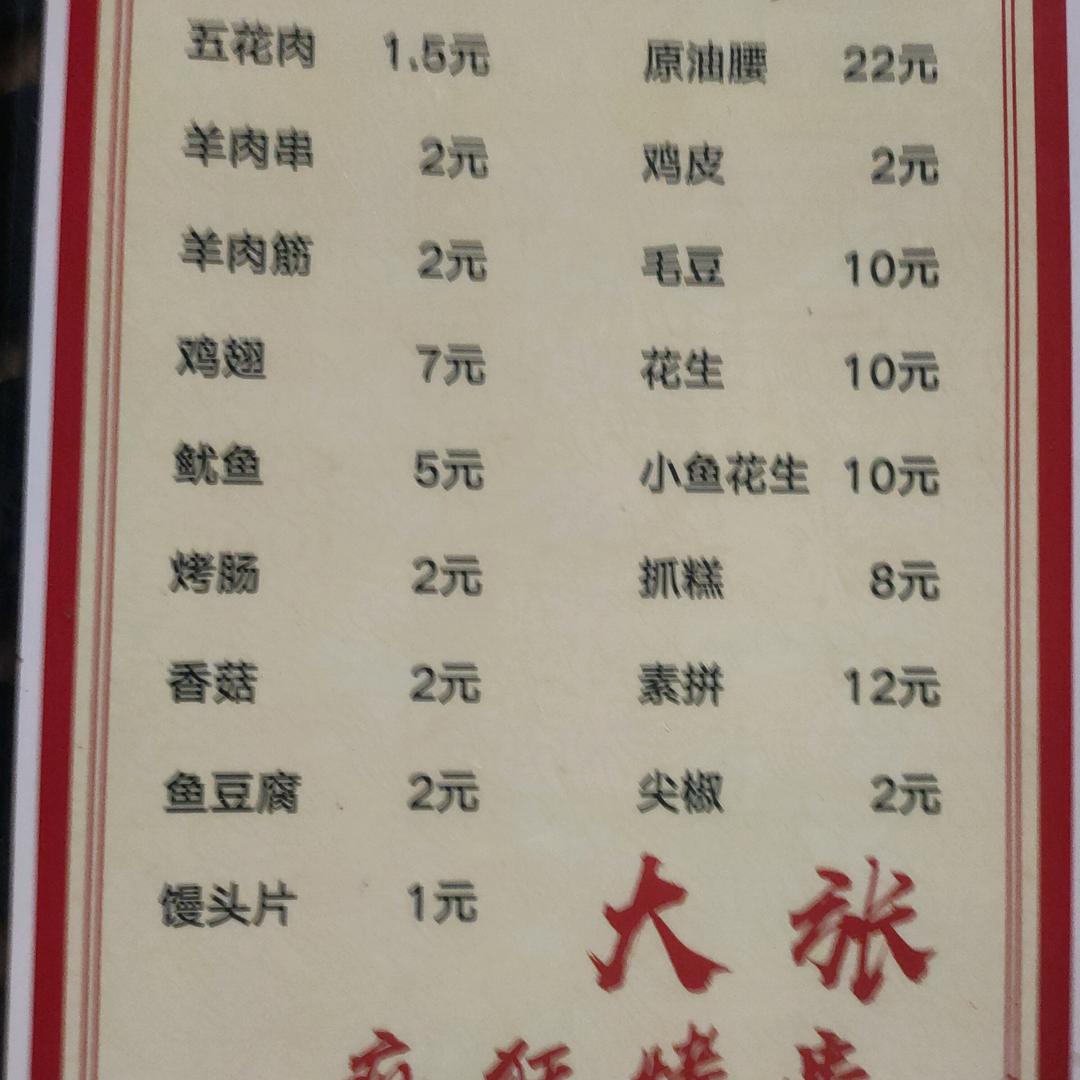 五花肉 1.5元
羊肉串 2元
羊肉筋 2元
鸡翅 7元
鱿鱼 5元
烤肠 2元
香菇 2元
鱼豆腐 2元
馒头片 1元
原油腰 22元
鸡皮 2元
毛豆 10元
花生 10元
小鱼花生 10元
抓糕 8元
素拼 12元
尖椒 2元
大张
疯狂烤串